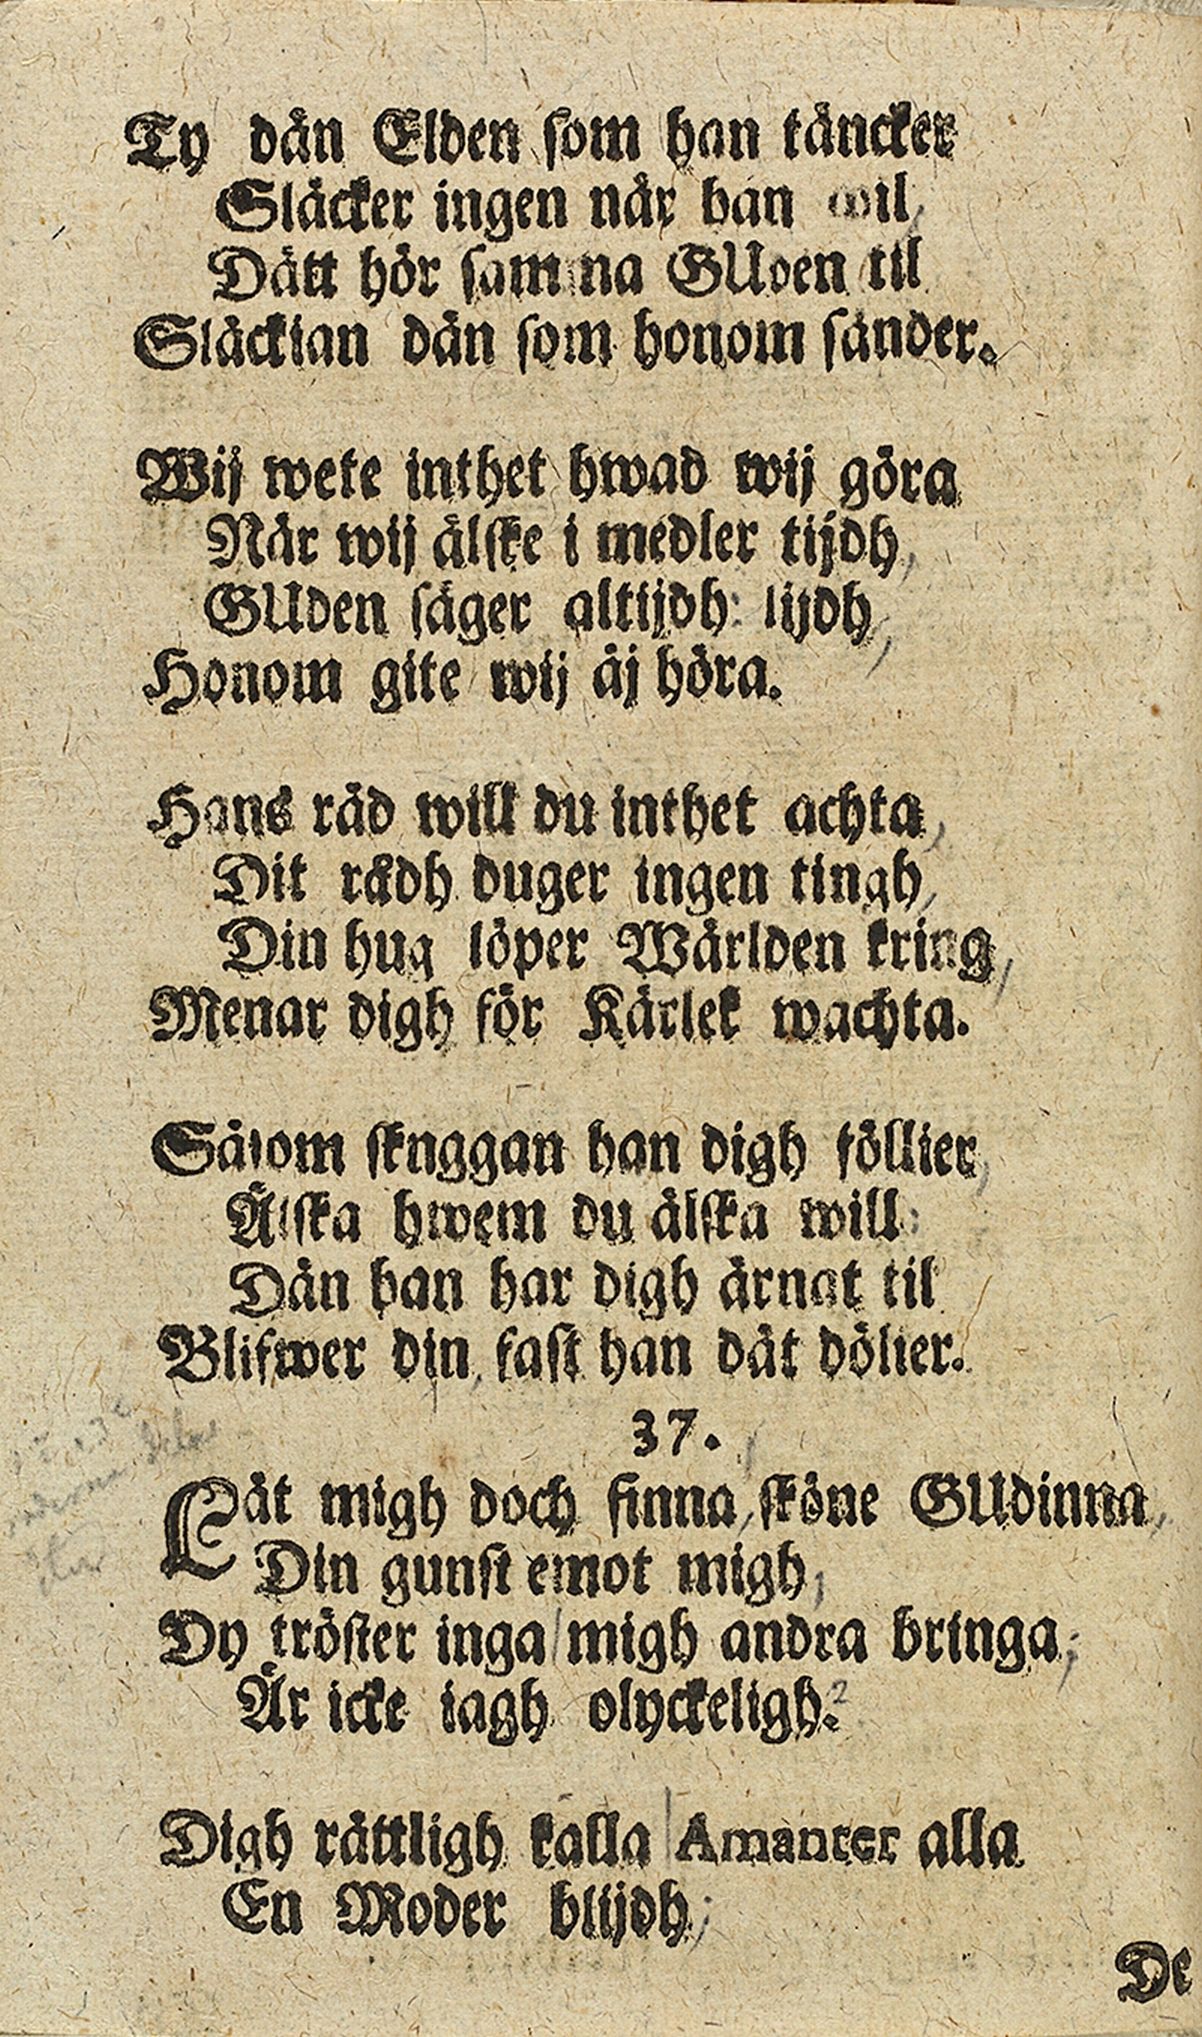 Ty dän Elden som han täncker
Släcker ingen när han wil,
Dätt hör samma GUden til
Släckian dän som honom sänder.
Wij wete inthet hwad wij göra
När wij älske i medler tijdh,
GUden säger altijdh: lijdh,
Honom gite wij äj höra.
Hans råd will du inthet achta,
Dit rådh duger ingen tingh,
Din hug löper Wärlden kring,
Menar digh för Kärlek wachta.
Såsom sknggan han digh föllier,
Älska hwem du älska will:
Dän han har digh ärnat til
Blifwer din, fast han dät dölier.
37.
Låt migh doch finna, sköne GUdinna,
Din gunst emot migh,
Dy tröster inga migh andra bringa;
Är icke iagh olyckeligh?
Digh rättligh kalla Amanter alla
En Moder blijdh;
De